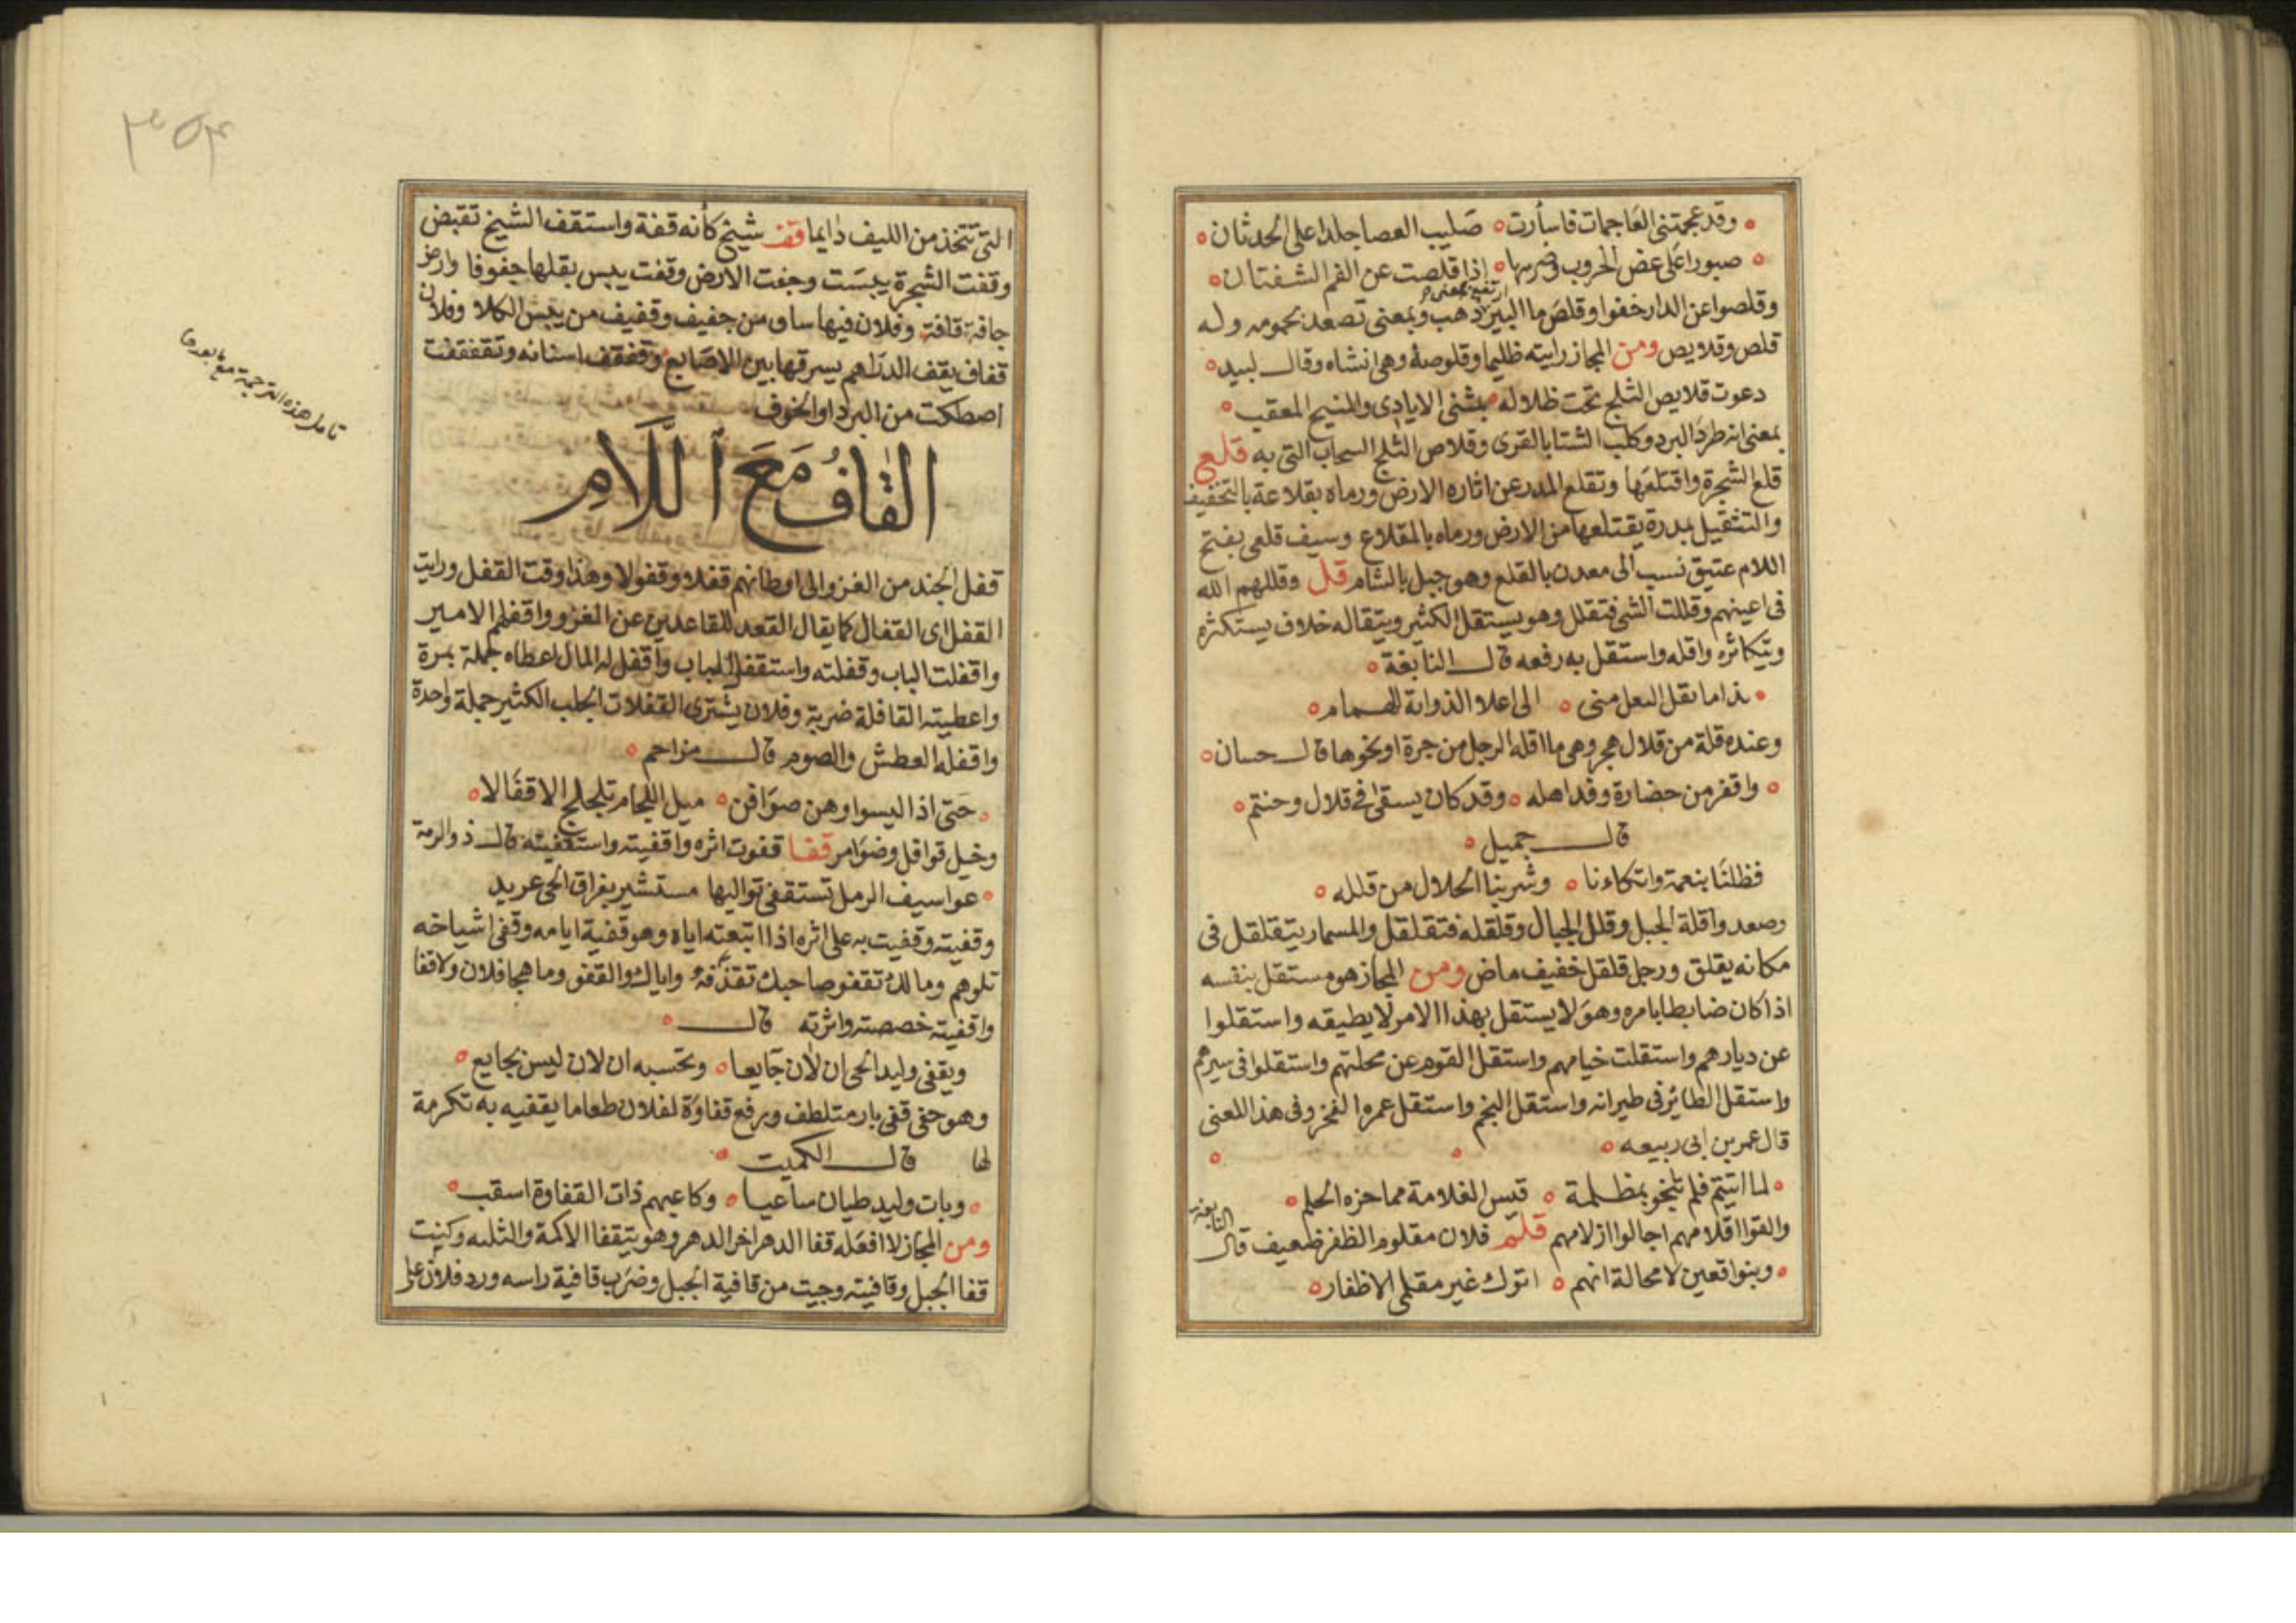 وقد عجمتنى العاجمات فاسأرت صليب العصا جلدا على الحدثان
صبورا على عض الحروب وضرسها اذا قلصت عن الفم الشفتان
وقلصوا عن الدار خفوا وقلص ما البير ذهب وبمعنى تصعد بحمومه وله
ارتفع بمعنى
قلص وقلايص ومن المجاز رايته ظليما وقلوصه وهى انشاه وقال لبيد
دعوت قلايص الثلج تحت ظلاله بمثنى الايادى والمنيح المعقب
بمعنى انه طرد البرد وكلب الشتا بالقرى وقلاص الثلج السحاب التى به قلع
قلع الشجرة واقتلعها وتقلع المدر عن اثاره الارض ورماه بقلاعة بالتخفيف
والتثقيل بمدرة يقتلعها من الارض ورماه بالمقلاع وسيف قلعى بفتح
اللام عتيق نسب الى معدن بالقلع وهو جبل بالشام قل وقللهم الله
فى اعينهم وقللت الشى فتقلل وهو يستقل الكثير ويتقاله خلاف يستكثره
ويتكاثره واقله واستقل به رفعه قال النابغة
فذا ما تقل النعل منى الى اعلا الذوابة للهمام
وعنده قلة من قلال هجر وهى ما اقله الرجل من جرة او نحوها قال حسان
واقفر من حضارة وفد اهله وقد كان يسقى فى قلال وحنتم
قال جميل
فظللنا بنعمة واتكاءنا وشربنا الحلال من قلله
وصعدوا قلة الجبل وقلل الجبال وقلقله فتقلقل والمسمار يتقلقل فى
مكانه يقلق ورجل قلقل خفيف ماض ومن المجاز هو مستقل بنفسه
اذا كان ضابطا بامره وهو لا يستقل بهذا الامر لا يطيقه واستقلوا
عن ديارهم واستقلت خيامهم واستقل القوم عن محلتهم واستقلوا فى سيرهم
واستقل الطائر فى طيرانه واستقل النجم واستقل عمره الفخر وفى هذا المعنى
قال عمر بن ابى ربيعه
لما اتيتم فلم تنجو بمظلمة قيس القلامة مما حزه الجلم
والقوا اقلامهم اجالوا ازلامهم قلم فلان مقلوم الظفر ضعيف قال
النابغة
وبنوا قعين لا محالة انهم اتوك غير مقلمى الاظفار
٣٥٤
التى تتخذ من الليف دايما قفف شيخ كأنه قفة واستقف الشيخ تقبض
وقفت الشجرة يبست وجفت الارض وقفت يبس بقلها جفوفا وارض
جافة قافة وفلان فيها ساو من جفيف وقفيف من يبس الكلا وفلان
قفاف يقف الدراهم يسرقها بين الاصابع وقفقف اسنانه وتقفقفت
اصطكت من البرد او الخوف
القاف مع اللام
قفل الجند من الغزو الى اوطانهم قفلا وقفولا وهذا وقت القفل ورايت
القفل اى القفال كما يقال القعد للقاعدين عن الغزو واقفلهم الامير
واقفلت الباب وقفلته واستقفل الباب واقفل له المال اعطاه جملة بمرة
واعطيته القافلة ضربة وفلان يشترى القفلات الجلب الكثير جملة واحدة
واقفله العطش والصوم قال مزاحم
حتى اذا اليسوا وهن صوافن ميل اللجام تلجلج الاقفالا
وخيل قوافل وضوامر قفا قفوت اثره واقفيته واستقفيته قال ذو الرمة
عواسيف الرمل تستقفى تواليها مستشير بفراق الحى عريد
وقفيته وقفيت به على اثره اذا اتبعته اياه وهو قفية ايامه وقفى اشياخه
تلوهم وما لك تقفو صاحبك تقذفه واياك والقفو وما هجا فلان ولا قفا
واقفيته خصصته واثرته قال
ويقفى وليد الحى ان لان جايعا وتحسبه ان لان ليس بجايع
وهو حفى قفى بار متلطف ورفع قفاوة لفلان طعاما يقفيه به تكرمة
لها قال الكميت
وبات وليد طيان ساعيا وكاعبهم ذات القفاوة اسقب
ومن المجاز لا افعله قفا الدهر اخر الدهر وهو يتقفا الاكمة والثلبه وكنيت
قفا الجبل وقافيته وجيت من قافية الجبل وضرب قافية راسه ورد فلان على
تامل هذه الترجمة مع ما بعدها